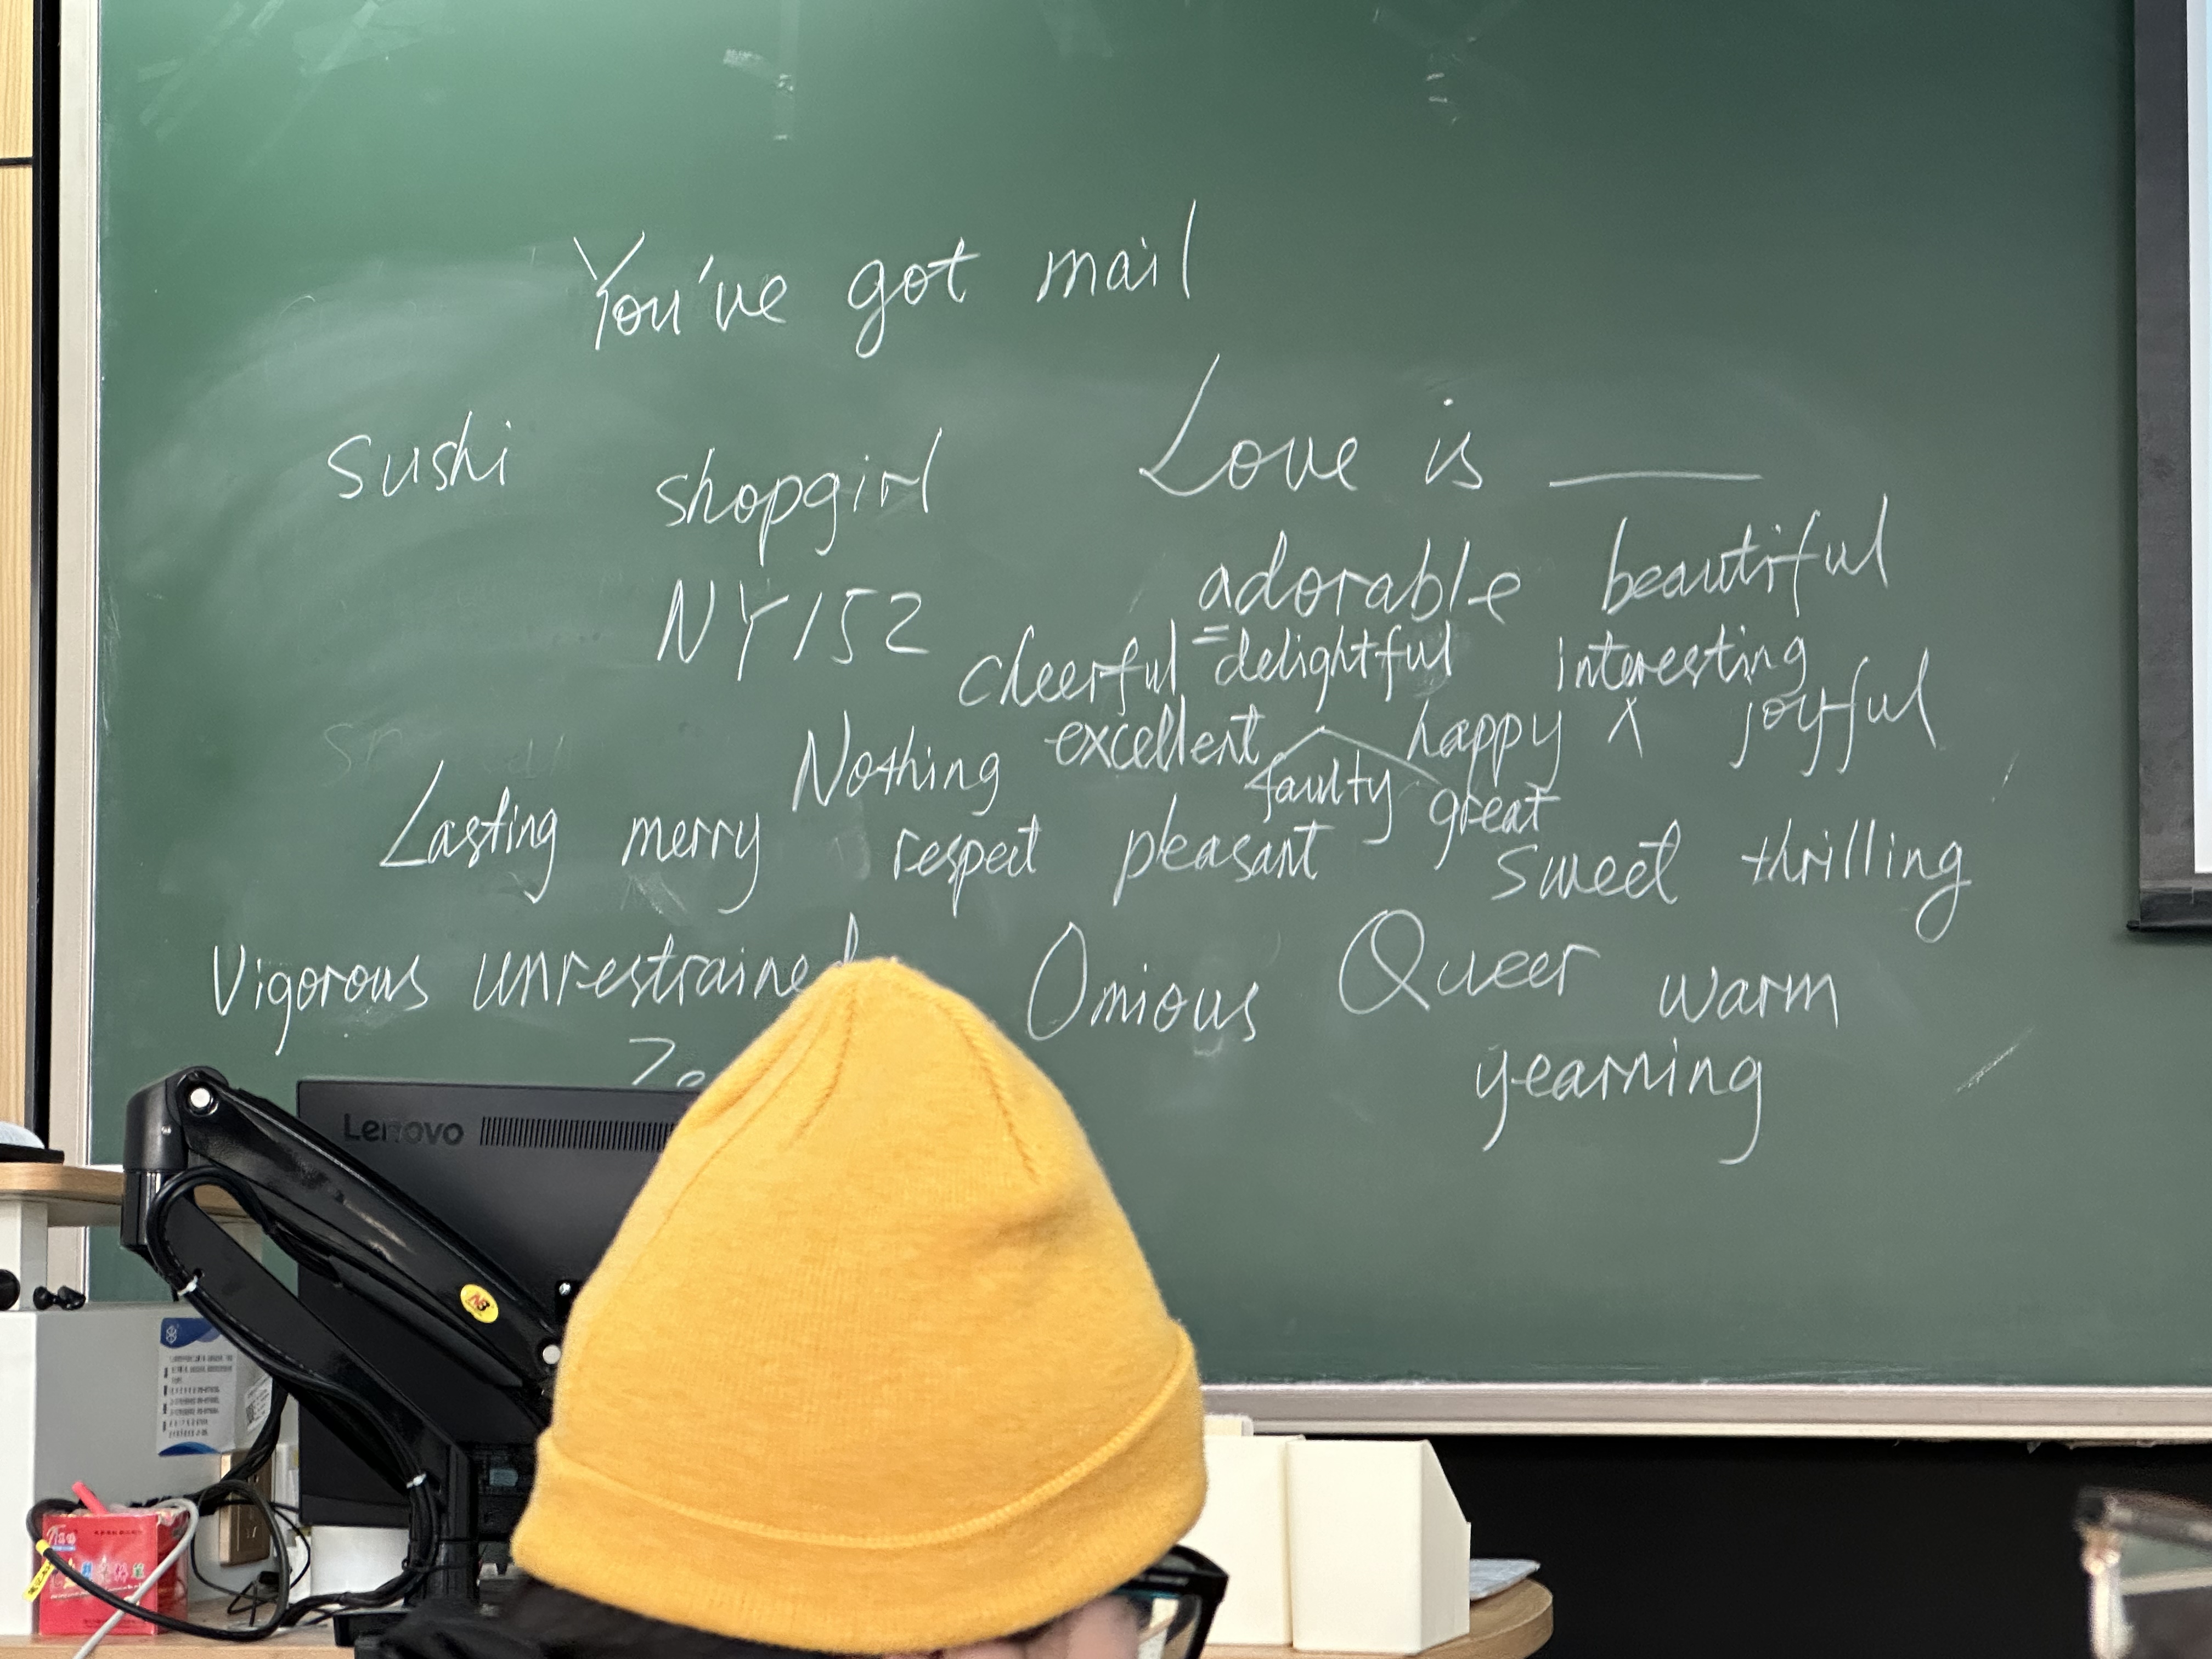 You've got mail
Sushi
shopgirl
NY152
Love is ____
adorable beautiful
cheerful = delightful interesting
Nothing excellent happy X joyful
faulty great
Lasting merry respect pleasant sweet thrilling
Vigorous unrestrained Omious Queer warm
yearning
Lenovo